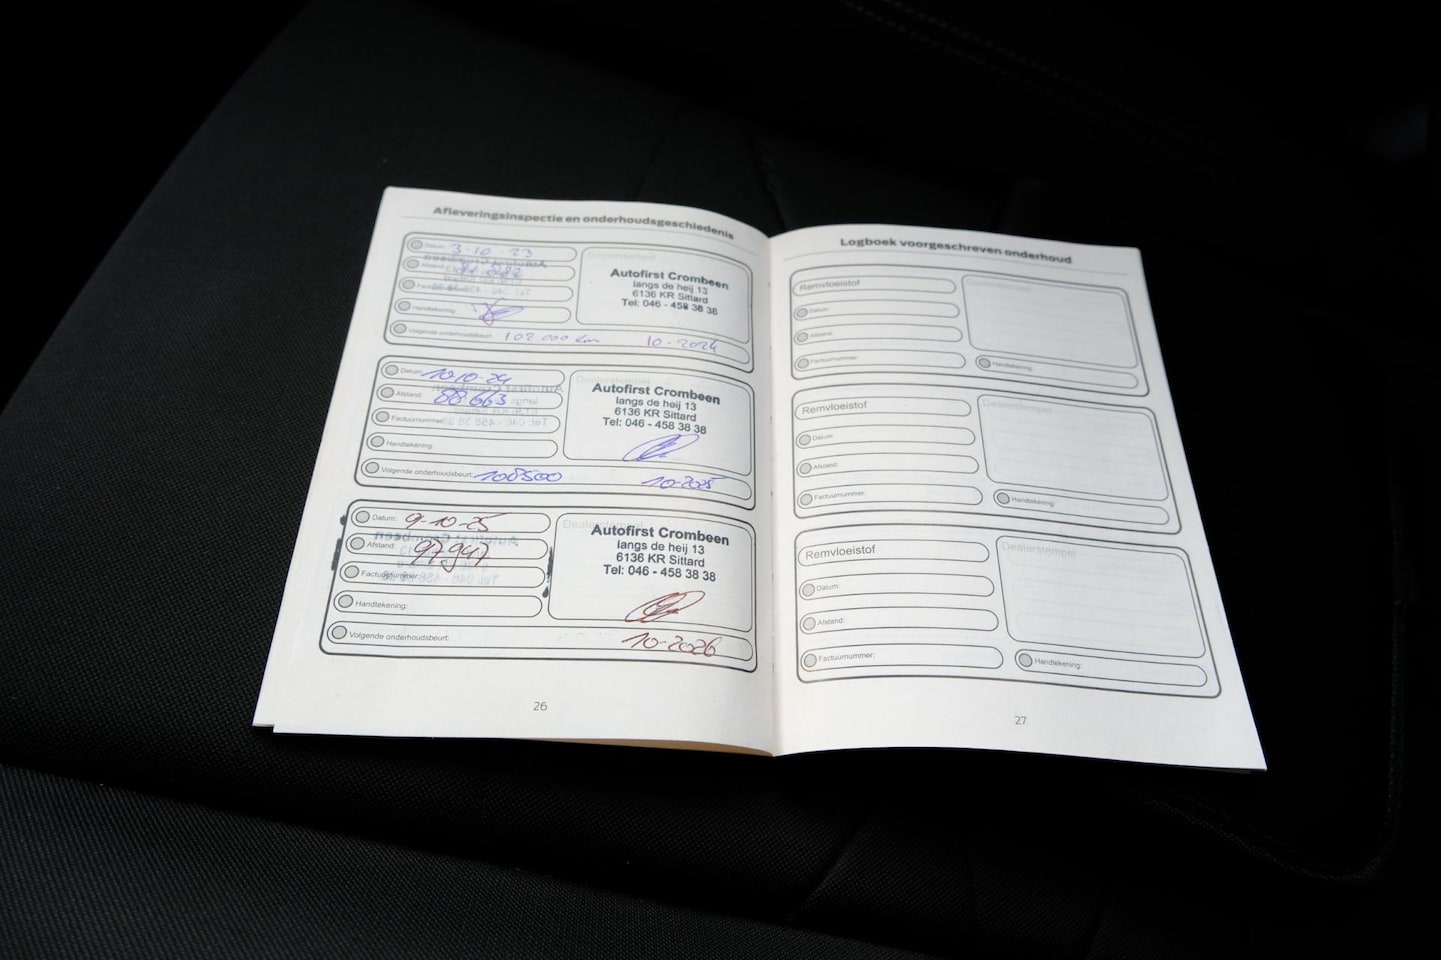 Afleveringsinspectie en onderhoudsgeschiedenis
Datum: 3-10-23
Afstand:
Factuurnummer:
Handtekening:
Autofirst Crombeen
langs de heij 13
6136 KR Sittard
Tel: 046 - 458 38 38
Volgende onderhoudsbeurt: 102.000 km 10-2024
Datum: 10-10-24
Afstand: 88.663
Factuurnummer:
Handtekening:
Dealerstempel
Autofirst Crombeen
langs de heij 13
6136 KR Sittard
Tel: 046 - 458 38 38
Volgende onderhoudsbeurt: 108500 10-2025
Datum: 9-10-25
Afstand: 97947
Factuurnummer:
Handtekening:
Dealerstempel
Autofirst Crombeen
langs de heij 13
6136 KR Sittard
Tel: 046 - 458 38 38
Volgende onderhoudsbeurt: 10-2026
26
Logboek voorgeschreven onderhoud
Remvloeistof
Dealerstempel
Datum:
Afstand:
Factuurnummer:
Handtekening:
Remvloeistof
Dealerstempel
Datum:
Afstand:
Factuurnummer:
Handtekening:
Remvloeistof
Dealerstempel
Datum:
Afstand:
Factuurnummer:
Handtekening:
27